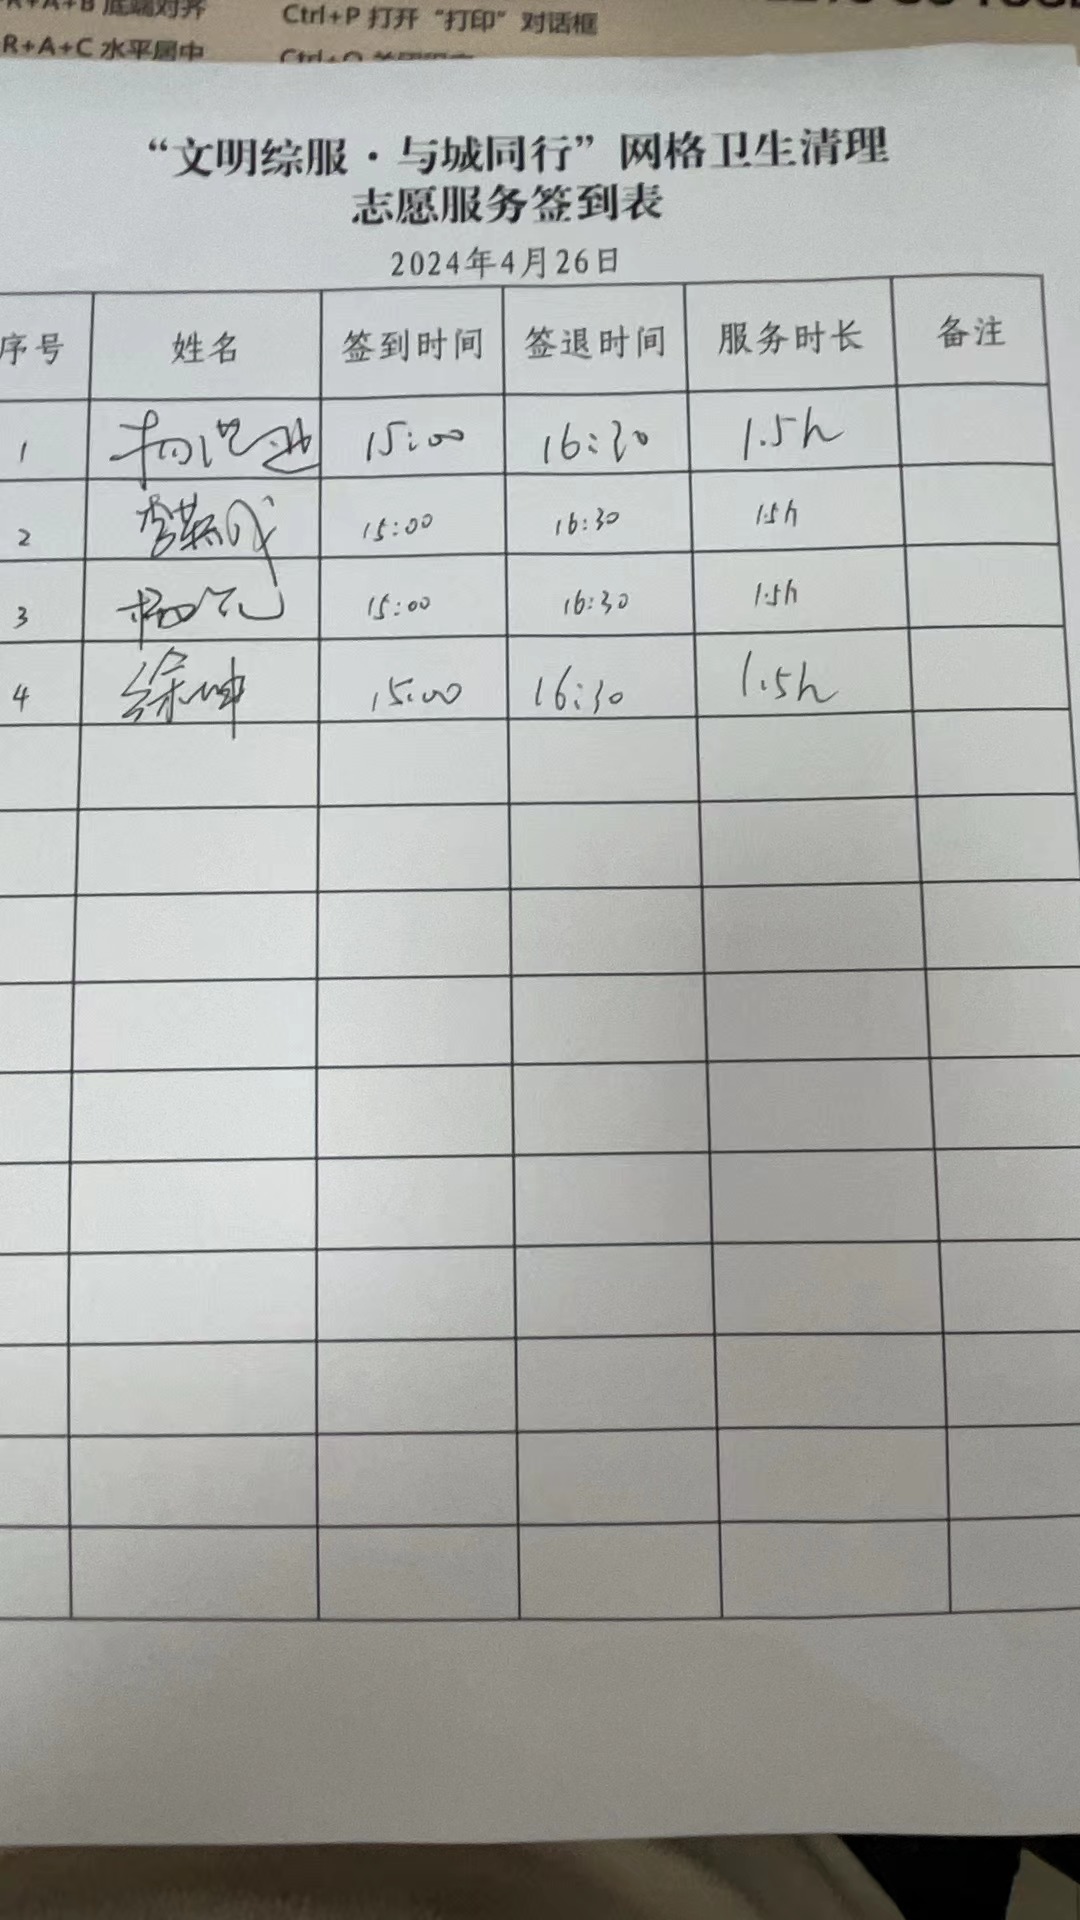 R+A+B 底端对齐
Ctrl+P 打开“打印”对话框
R+A+C 水平居中
“文明综服·与城同行”网格卫生清理
志愿服务签到表
2024年4月26日
序号 姓名 签到时间 签退时间 服务时长 备注
1 15:00 16:30 1.5h
2 15:00 16:30 1.5h
3 15:00 16:30 1.5h
4 徐坤 15:00 16:30 1.5h